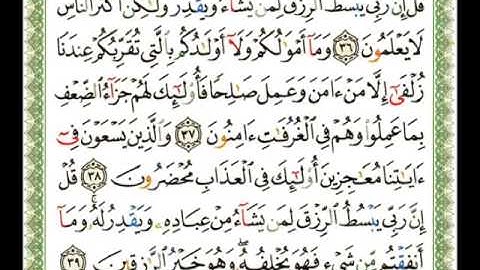 قُلْ إِنَّ رَبِّى يَبْسُطُ ٱلرِّزْقَ لِمَن يَشَآءُ وَيَقْدِرُ وَلَٰكِنَّ أَكْثَرَ ٱلنَّاسِ
لَا يَعْلَمُونَ ٣٦ وَمَآ أَمْوَٰلُكُمْ وَلَآ أَوْلَٰدُكُم بِٱلَّتِى تُقَرِّبُكُمْ عِندَنَا
زُلْفَىٰٓ إِلَّا مَنْ ءَامَنَ وَعَمِلَ صَٰلِحًا فَأُو۟لَٰٓئِكَ لَهُمْ جَزَآءُ ٱلضِّعْفِ
بِمَا عَمِلُوا۟ وَهُمْ فِى ٱلْغُرُفَٰتِ ءَامِنُونَ ٣٧ وَٱلَّذِينَ يَسْعَوْنَ فِىٓ
ءَايَٰتِنَا مُعَٰجِزِينَ أُو۟لَٰٓئِكَ فِى ٱلْعَذَابِ مُحْضَرُونَ ٣٨ قُلْ
إِنَّ رَبِّى يَبْسُطُ ٱلرِّزْقَ لِمَن يَشَآءُ مِنْ عِبَادِهِۦ وَيَقْدِرُ لَهُۥ وَمَآ
أَنفَقْتُم مِّن شَىْءٍ فَهُوَ يُخْلِفُهُۥ وَهُوَ خَيْرُ ٱلرَّٰزِقِينَ ٣٩